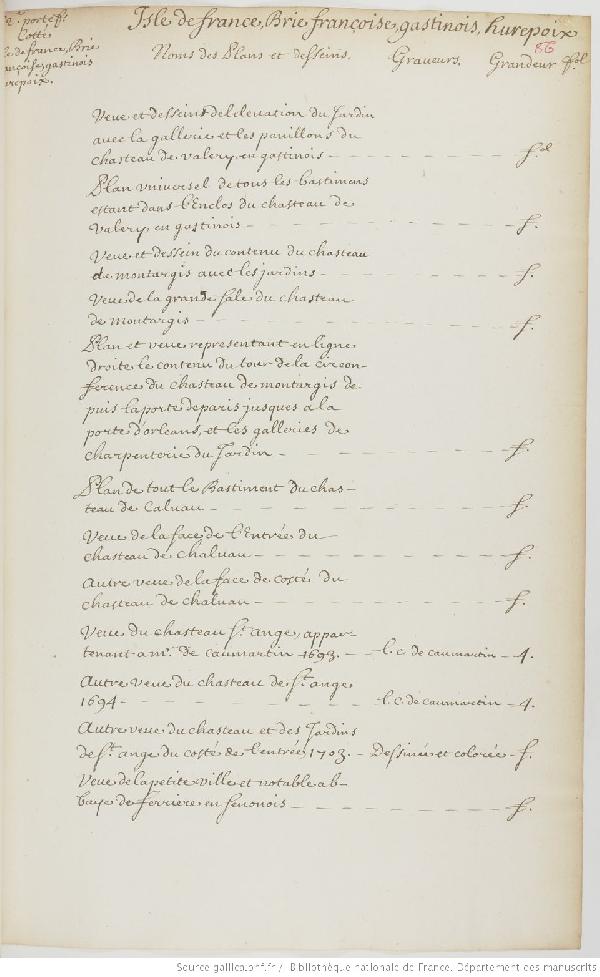 portef.
Cotte
de france, Brie
françoise, gastinois
hurepoix.
Isle de france, Brie françoise, gastinois, hurepoix
86
Noms des Plans et desseins. Graveurs. Grandeur fol
Veue et desseins del'elevation du Jardin
avec la gallerie et les pavillons du
chasteau de valery en gastinois — f.ol
Plan vniversel de tous les bastimens
estant dans l'Enclos du chasteau de
valery en gastinois — f.
Veue et dessein du contenu du chasteau
de montargis avec les jardins — f.
Veue de la grande sale du chasteau
de montargis — f.
Plan et veue representant en ligne
droite le contenu du tour de la circon-
ference du chasteau de montargis de-
puis la porte de paris jusques a la
porte d'orleans, et les galleries de
charpenterie du Jardin — f.
Plan de tout le Bastiment du chas-
teau de Caluau — f.
Veue de la face de l'Entrée du
chasteau de chaluau — f.
Autre veue de la face de costé du
chasteau de chaluau — f.
Veue du chasteau s.t ange, appar-
tenant a mr. de caumartin 1693. — l. c. de caumartin — 4.
Autre veue du chasteau de s.t ange
1694 — l. c. de caumartin — 4.
Autre veue du chasteau et des Jardins
de s.t ange du costé de l'entrée 1703. — Dessinée et colorée — f.
Veue de la petite ville et notable ab-
baye de ferriere en senonois — f.
Source gallica.bnf.fr / Bibliothèque nationale de France. Département des manuscrits